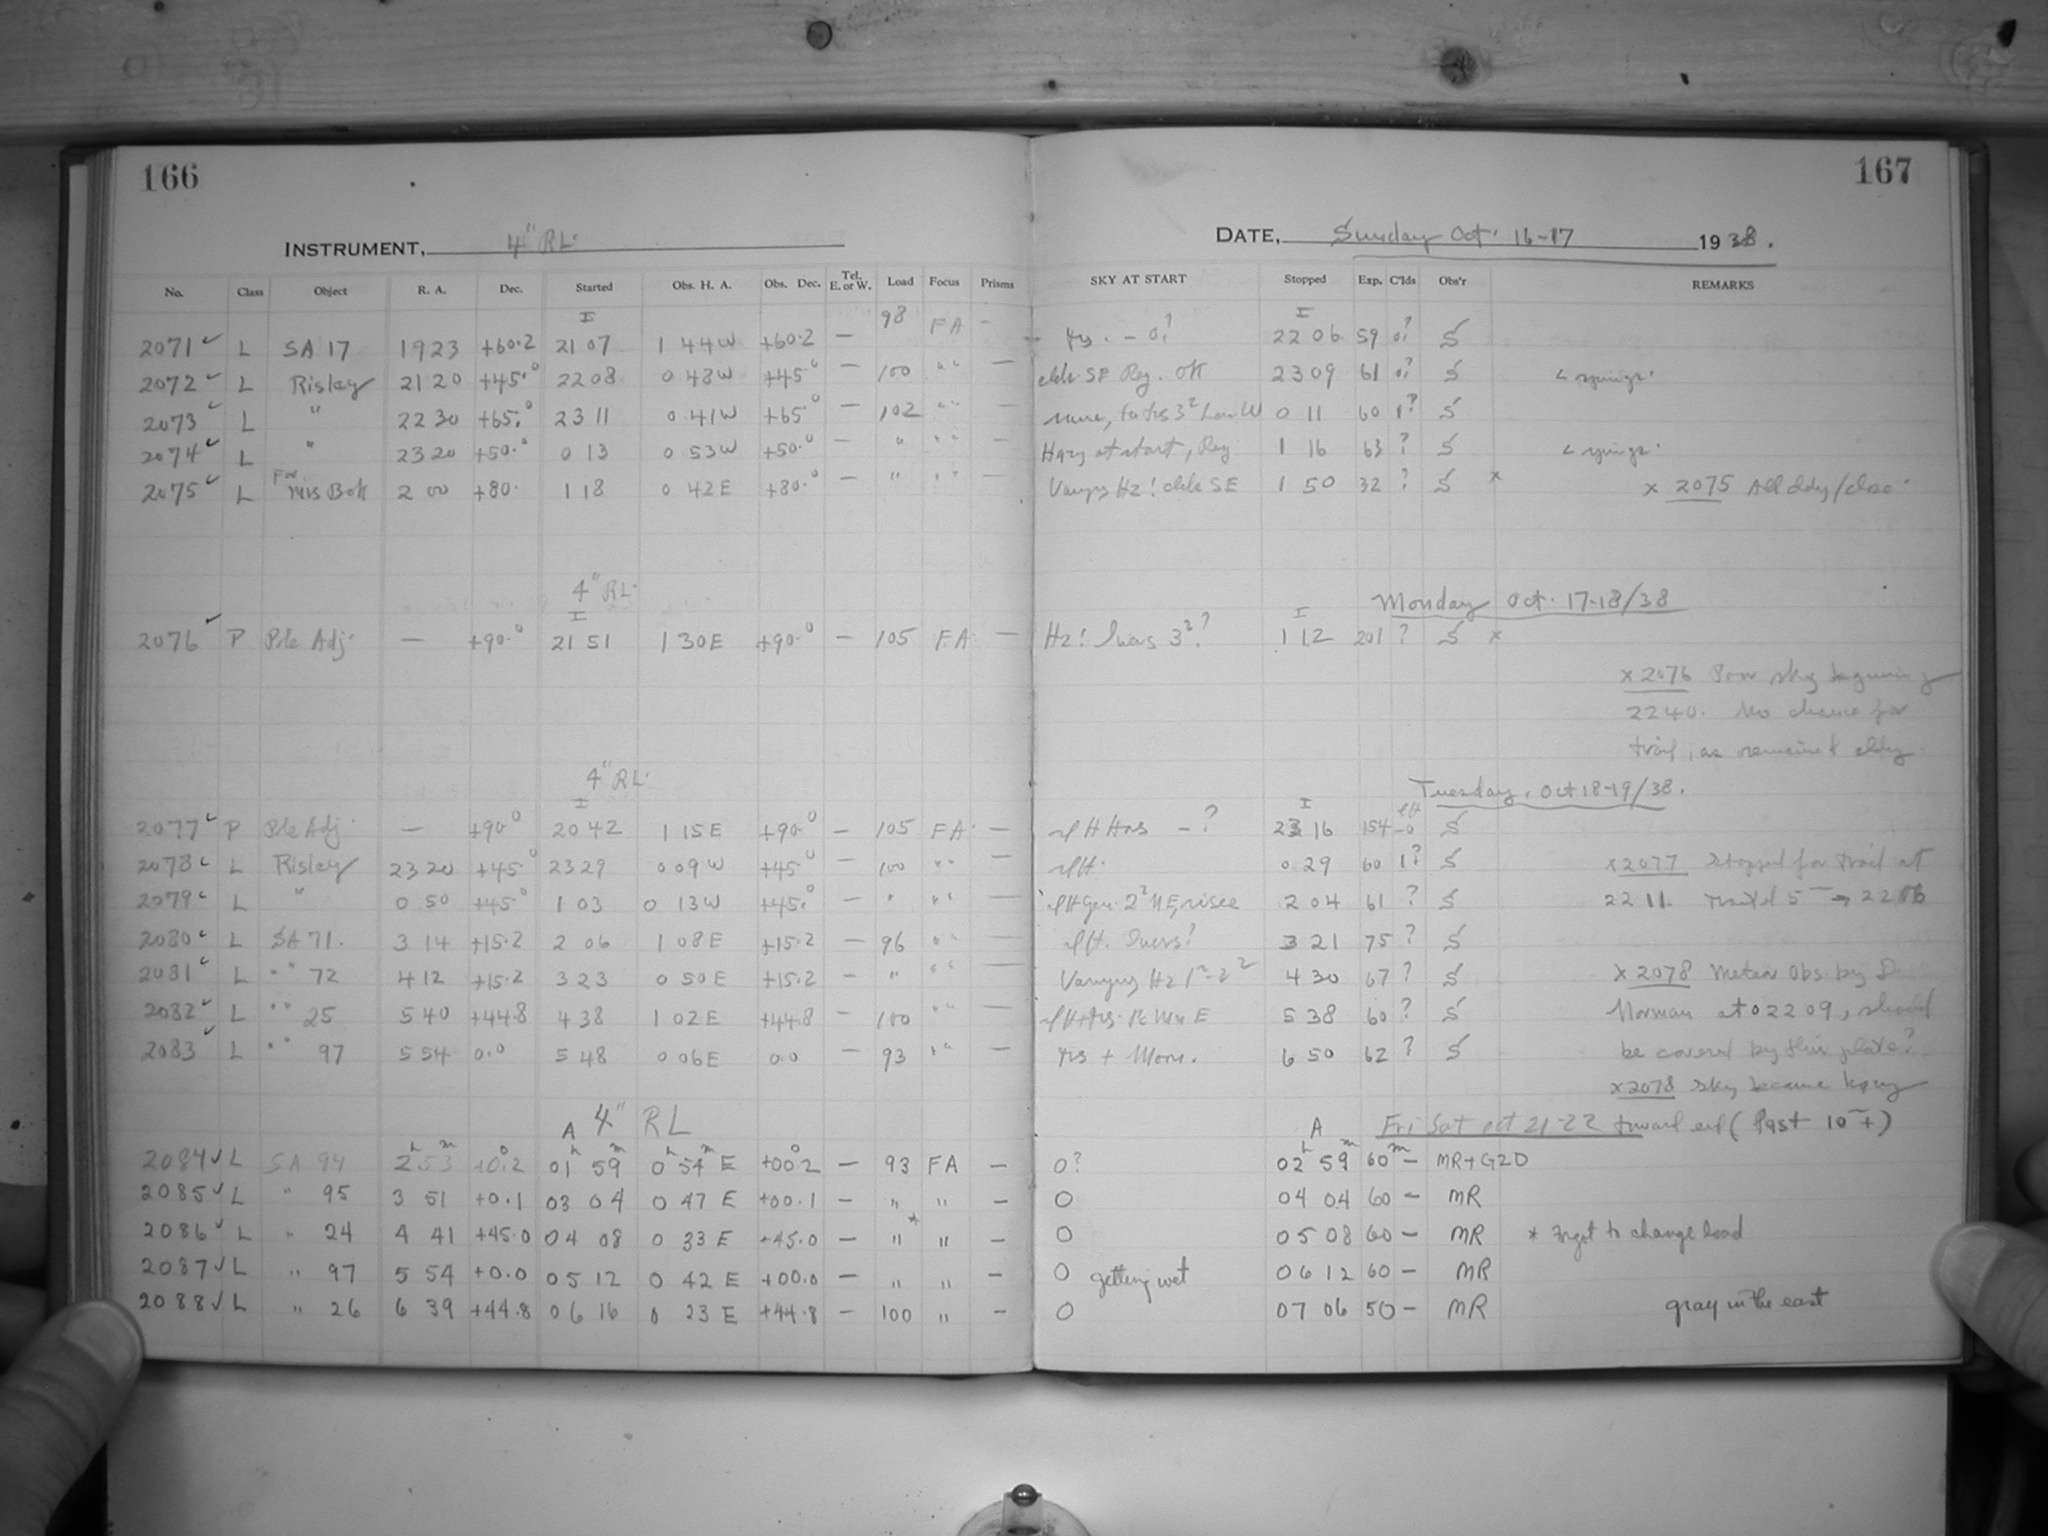 166
167
INSTRUMENT, 4" RL.
DATE, Sunday Oct. 16-17 1938.
No. Class Object R. A. Dec. Started Obs. H. A. Obs. Dec. Tel. E. or W. Load Focus Prisms SKY AT START Stopped Exp. C'lds Obs'r REMARKS
I I
2071 ✓ L SA 17 1923 +60.2 21 07 1 44 W +60.2 — 98 FA — - 0? 22 06 59 0? S
2072 ✓ L Risley 21 20 +45.0 22 08 0 48 W +45.0 — 100 " " — SE Reg. OK 23 09 61 0? S
2073 ✓ L " 22 30 +65.0 23 11 0 41 W +65.0 — 102 " " 0 11 60 1? S
2074 ✓ L " 23 20 +50.0 0 13 0 53 W +50.0 — " " " — Hazy at start, Reg 1 16 63 ? S
2075 ✓ L For Miss Bok 2 00 +80. 1 18 0 42 E +80.0 — " " " Varying Hz! SE 1 50 32 ? S x x 2075 All cldy/close
4" RL. Monday Oct. 17-18/38
I I
2076 ✓ P Pole Adj. — +90.0 21 51 1 30 E +90.0 — 105 FA — Hz! 1 12 201 ? S x
x 2076 Poor sky beginning
2240. No chance for
trail, as remained cldy.
4" RL. Tuesday, Oct 18-19/38.
I I
2077 ✓ P Pole Adj. — +90.0 20 42 1 15 E +90.0 — 105 FA — - ? 23 16 154 -0 S
2078 ✓ L Risley 23 20 +45.0 23 29 0 09 W +45.0 — 100 " " — 0 29 60 1? S x 2077 Stopped for trail at
2079 ✓ L " 0 50 +45.0 1 03 0 13 W +45.0 — " " " — 2 04 61 ? S 22 11 5 → 22 16
2080 ✓ L SA 71. 3 14 +15.2 2 06 1 08 E +15.2 — 96 " " — 3 21 75 ? S
2081 ✓ L " " 72 4 12 +15.2 3 23 0 50 E +15.2 — " " " — Varying Hz 4 30 67 ? S x 2078 Meteor Obs. by D.
2082 ✓ L " " 25 5 40 +44.8 4 38 1 02 E +44.8 — 100 " " — 5 38 60 ? S Norman at 0 22 09, should
2083 ✓ L " " 97 5 54 0.0 5 48 0 06 E 0.0 — 93 " " — + Moon. 6 50 62 ? S be covered by this plate?
x 2078 Sky became hazy
A 4" RL A Fri Sat Oct 21-22 toward end (last 10m +)
2084 ✓ L SA 94 2h 53m +0.2 01h 59m 0h 54m E +00.2 — 93 FA — 0? 02h 59m 60m — MR+GZD
2085 ✓ L " 95 3 51 +0.1 03 04 0 47 E +00.1 — " " — 0 04 04 60 — MR
2086 ✓ L " 24 4 41 +45.0 04 08 0 33 E +45.0 — " * " — 0 05 08 60 — MR * Forgot to change load
2087 ✓ L " 97 5 54 +0.0 05 12 0 42 E +00.0 — " " — 0 getting wet 06 12 60 — MR
2088 ✓ L " 26 6 39 +44.8 06 16 0 23 E +44.8 — 100 " — 0 07 06 50 — MR gray in the east